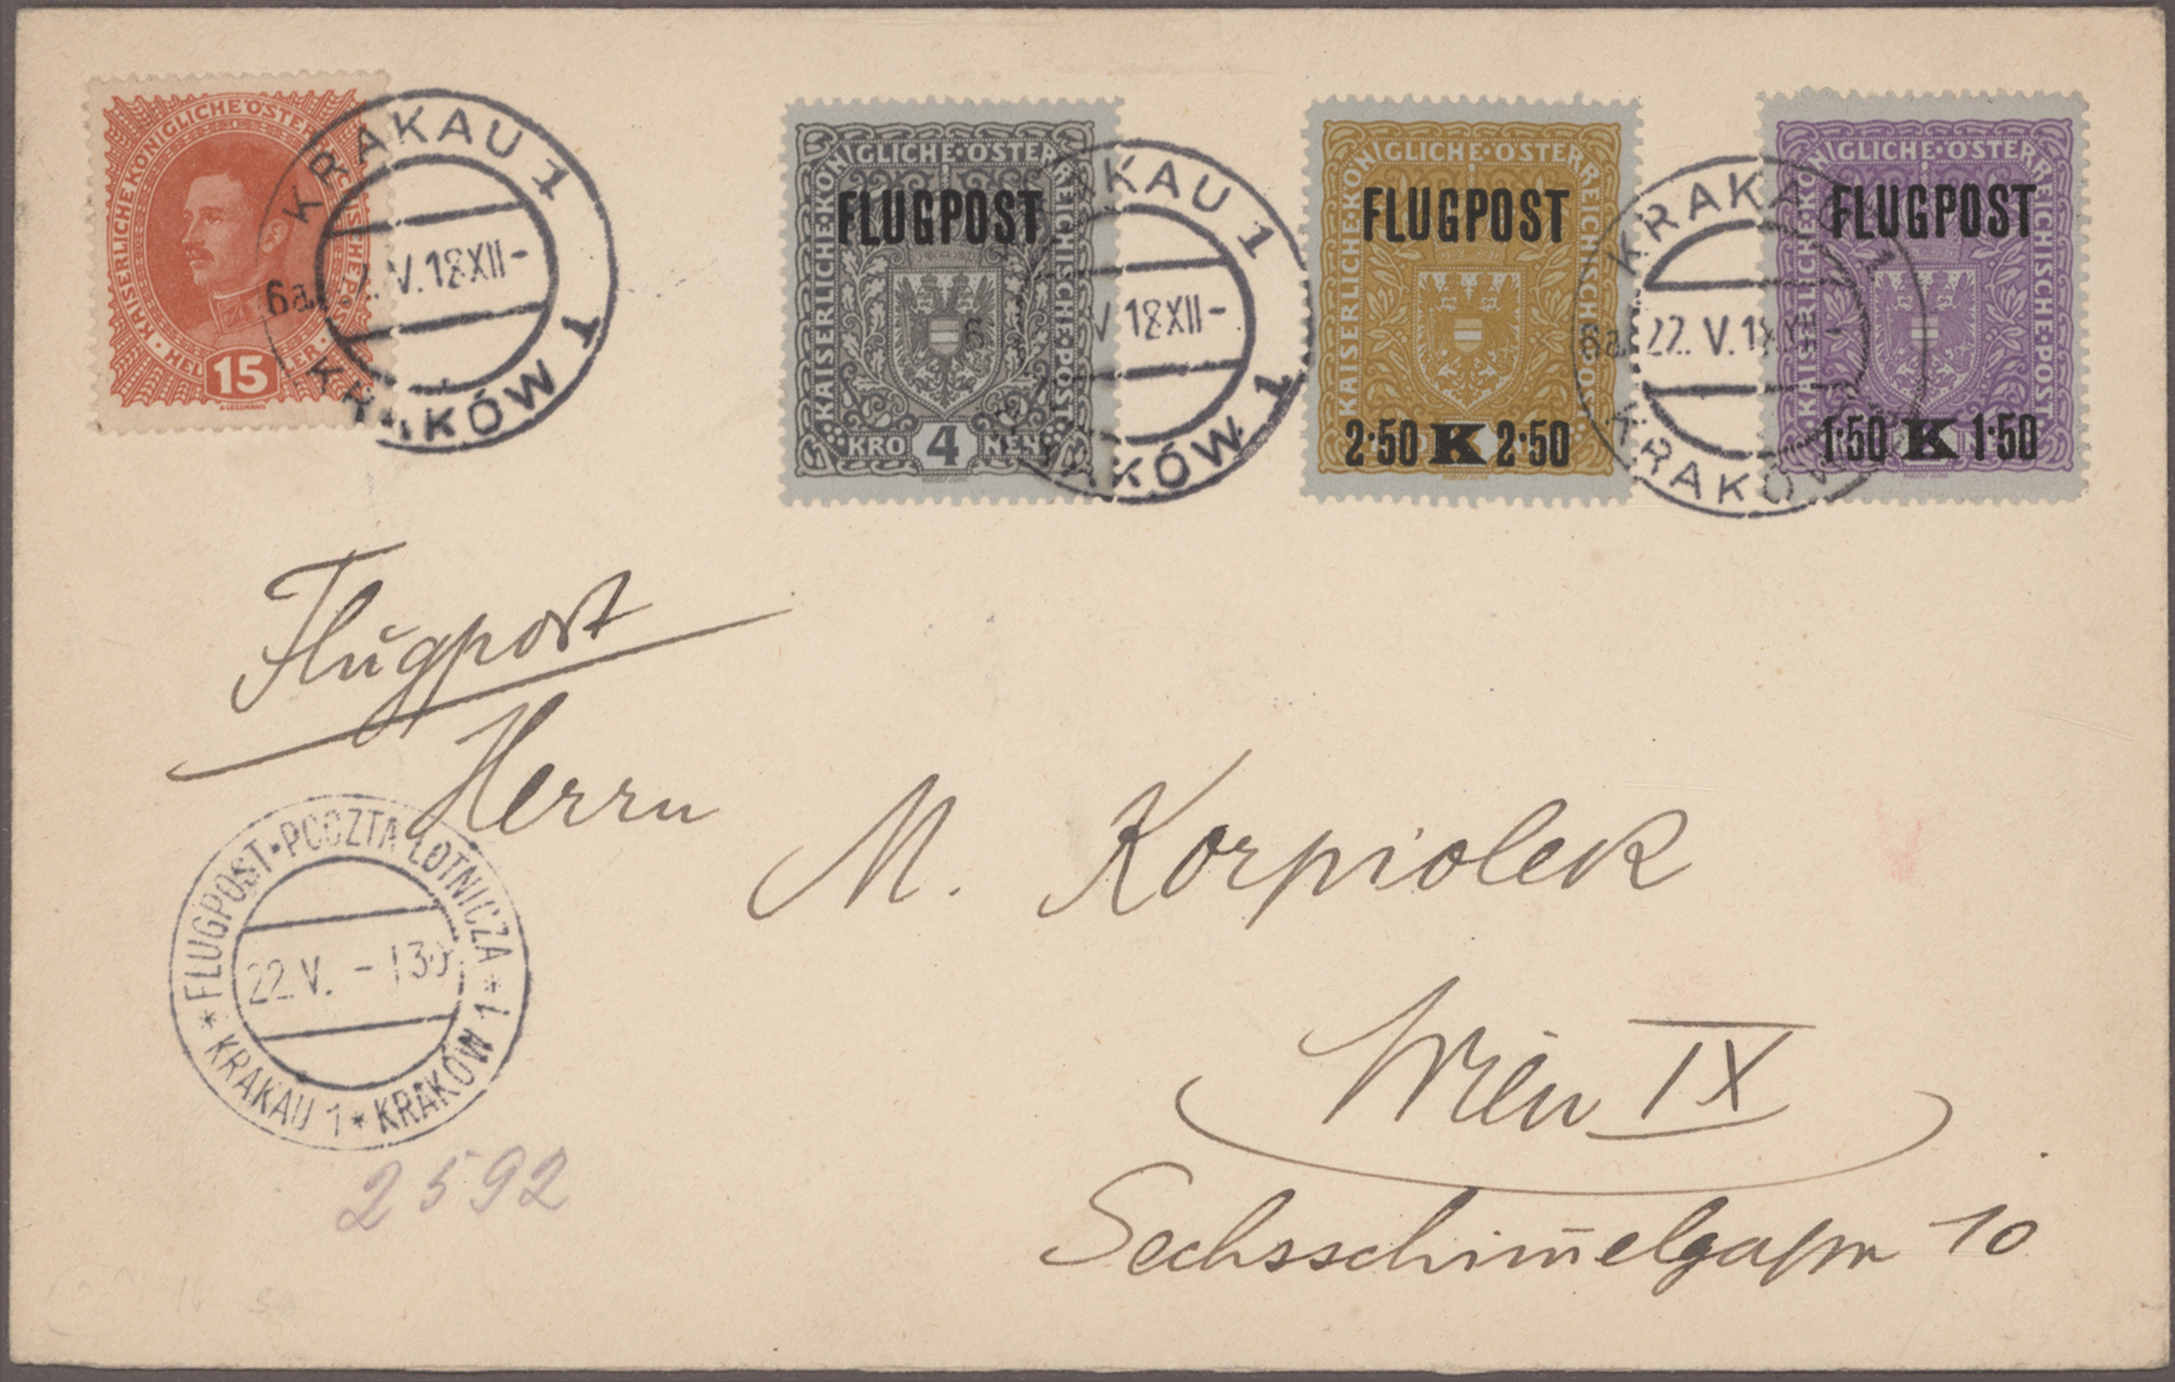 KAISERLICHE KÖNIGLICHE ÖSTERREICHISCHE POST
15
HELLER
KRAKAU 1
6a V. 18 XII-
KRAKÓW 1
KAISERLICHE·KÖNIGLICHE·ÖSTERREICHISCHE·POST
FLUGPOST
KRO 4 NEN
KRAKAU 1
6 V 18 XII-
KRAKÓW 1
KAISERLICHE·KÖNIGLICHE·ÖSTERREICHISCHE·POST
FLUGPOST
2·50 K 2·50
KRAKAU 1
6a 22. V. 18
KRAKÓW
KAISERLICHE·KÖNIGLICHE·ÖSTERREICHISCHE·POST
FLUGPOST
1·50 K 1·50
Flugpost
Herrn
M. Korpiolek
FLUGPOST·POCZTA LOTNICZA
22. V. - 130
* KRAKAU 1 * KRAKÓW 1 *
Wien IX
2592
Sechsschim̄elgasse 10